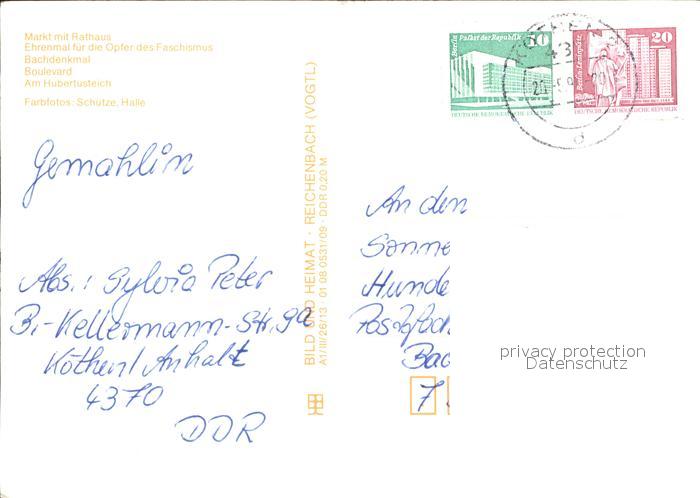 Markt mit Rathaus
Ehrenmal für die Opfer des Faschismus
Bachdenkmal
Boulevard
Am Hubertusteich
Farbfotos: Schütze, Halle
Gemahlin
Abs.: Sylvia Peter
B.-Kellermann-Str. 9a
Köthen/Anhalt
4370
DDR
BILD UND HEIMAT · REICHENBACH (VOGTL)
A1/III/26/13 01 08 0531/09 · DDR 0,20 M
Berlin Palast der Republik 10
DEUTSCHE DEMOKRATISCHE REPUBLIK
Berlin-Leninplatz 20
DEUTSCHE DEMOKRATISCHE REPUBLIK
An den
Sonne
Hunde
Postfach
Bad
7
privacy protection
Datenschutz